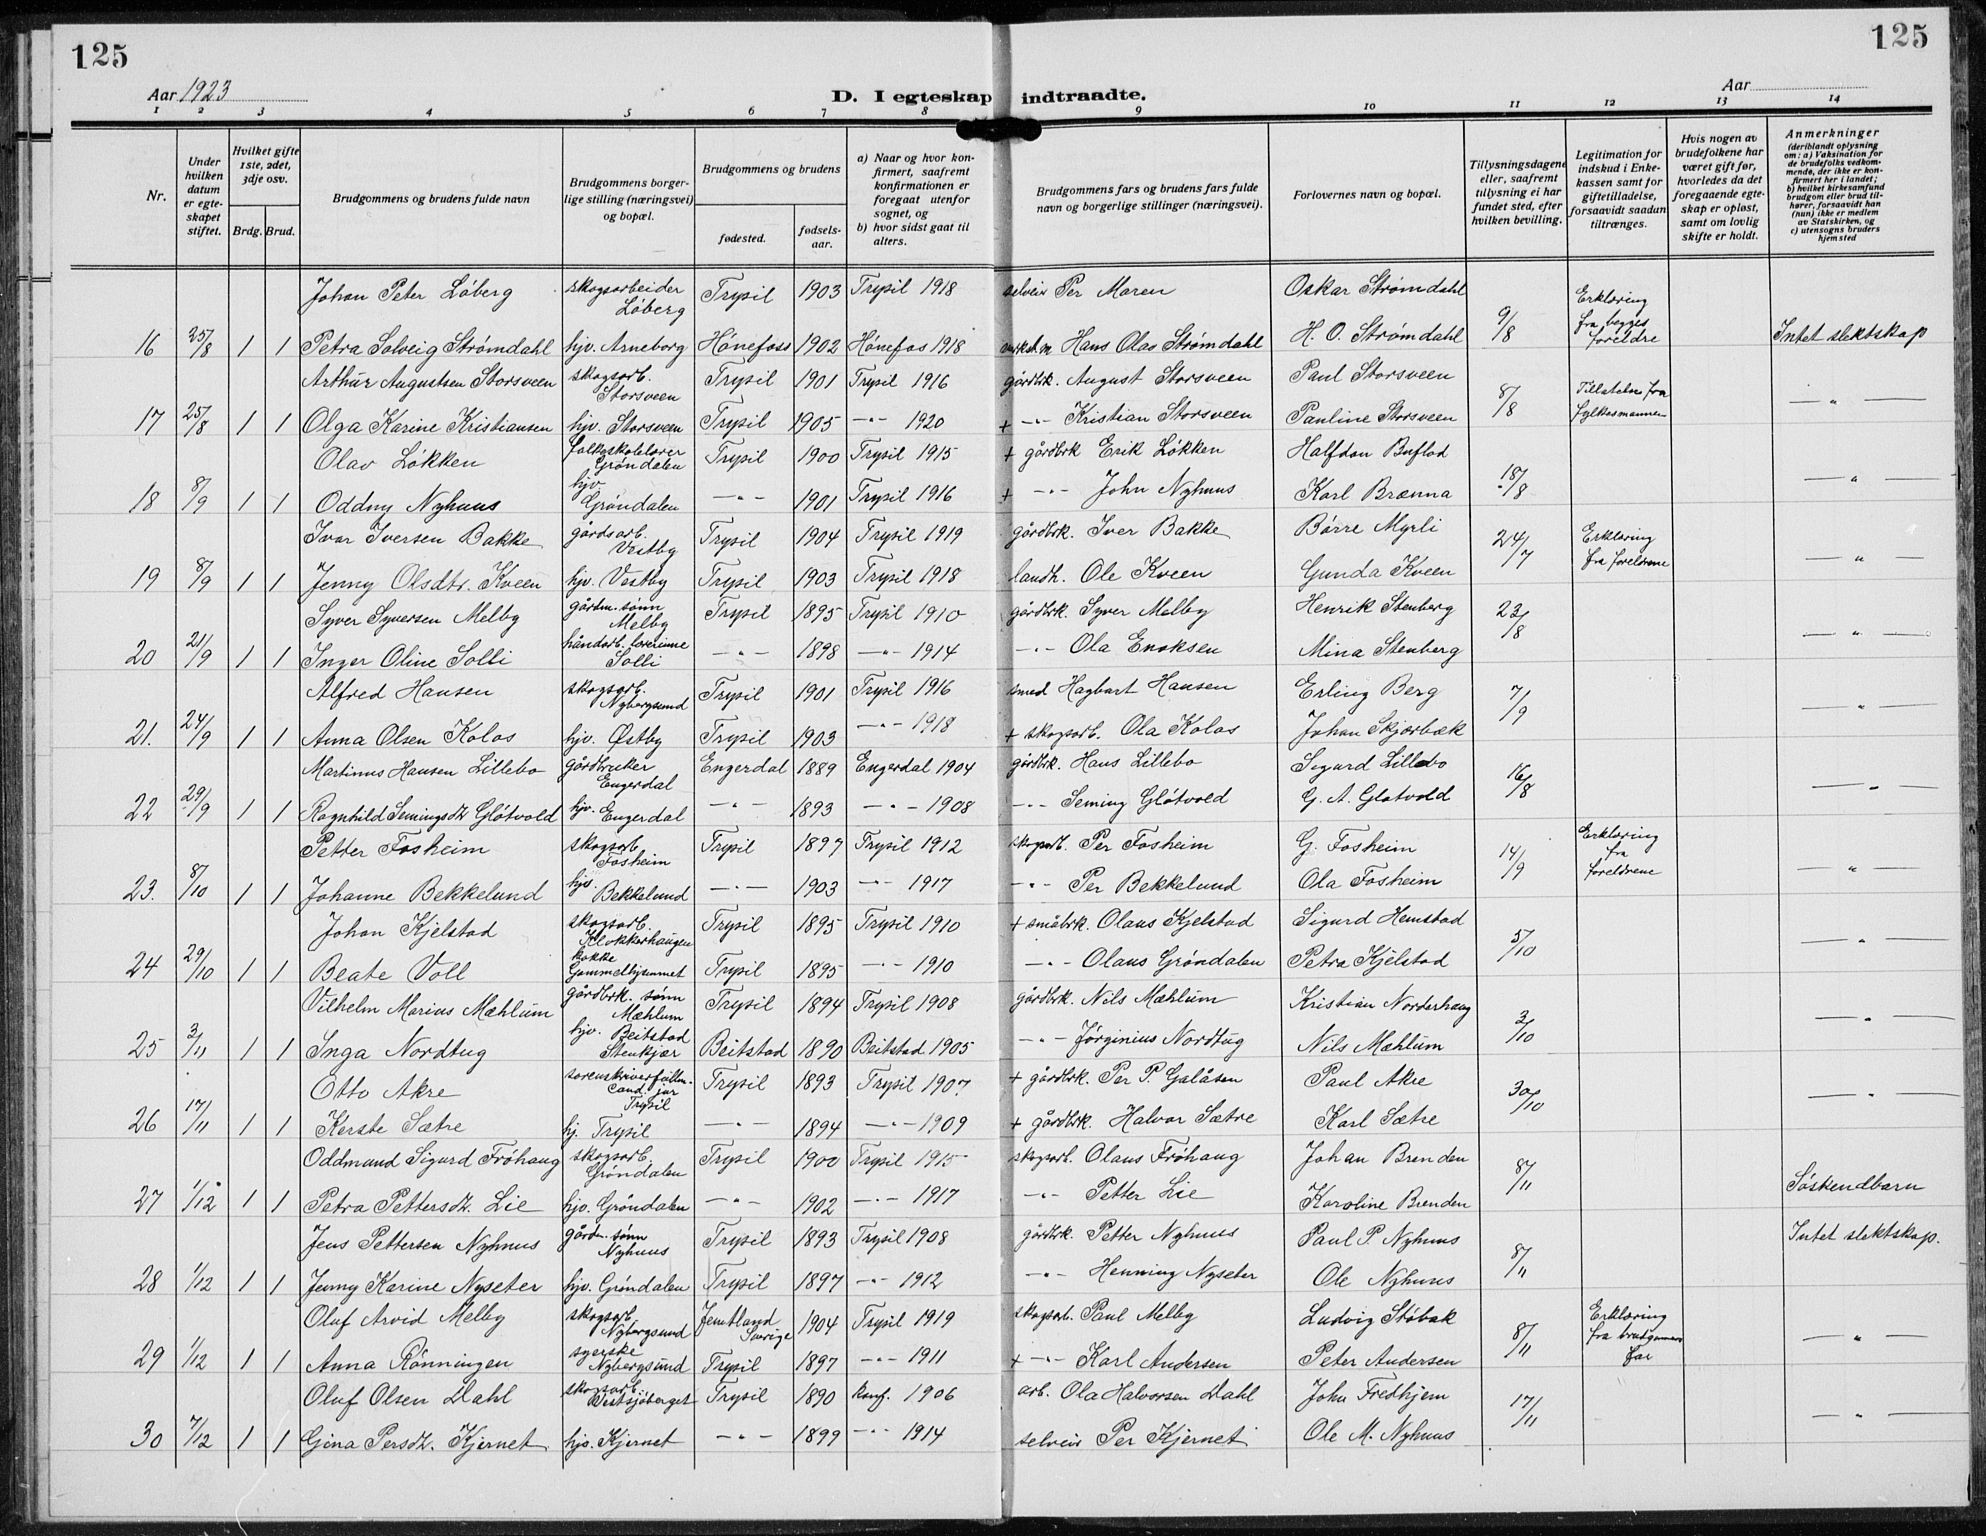 125
125
Aar 1923
Aar
D. I egteskap indtraadte.
1 2 3 4 5 6 7 8 9 10 11 12 13 14
Nr.
Under hvilken datum er egteskapet stiftet.
Hvilket gifte 1ste, 2det, 3dje osv.
Brdg. Brud.
Brudgommens og brudens fulde navn
Brudgommens borgerlige stilling (næringsvei) og bopæl.
Brudgommens og brudens
fødested.
fødselsaar.
a) Naar og hvor konfirmert, saafremt konfirmationen er foregaat utenfor sognet, og
b) hvor sidst gaat til alters.
Brudgommens fars og brudens fars fulde navn og borgerlige stillinger (næringsvei).
Forlovernes navn og bopæl.
Tillysningsdagene eller, saafremt tillysning ei har fundet sted, efter hvilken bevilling.
Legitimation for indskud i Enkekassen samt for giftetilladelse, forsaavidt saadan tiltrænges.
Hvis nogen av brudefolkene har været gift før, hvorledes da det foregaaende egteskap er opløst, samt om lovlig skifte er holdt.
Anmerkninger
(deriblandt oplysning om: a) Vaksination for de brudefolks vedkommende, der ikke er konfirmert her i landet; b) hvilket kirkesamfund brudgom eller brud tilhører, forsaavidt han (hun) ikke er medlem av Statskirken, og c) utensogns bruders hjemsted
Johan Peter Løberg skogsarbeider Løberg Trysil 1903 Trysil 1918 selveir Per Moren Oskar Strømdahl 9/8 Erklæring fra begges foreldre
16 25/8 1 1 Petra Solveig Strømdahl hjv. Arneborg Hønefoss 1902 Hønefos 1918 Hans Olav Strømdahl H. O. Strømdahl Intet slektskap
Arthur Augustsen Storsveen skogsarb. Storsveen Trysil 1901 Trysil 1916 gårdbrk. August Storsveen Paul Storsveen 8/8 Tillatelse fra fylkesmannen — " —
17 25/8 1 1 Olga Karine Kristiansen hjv. Storsveen Trysil 1905 —"— 1920 + —"— Kristian Storsveen Pauline Storsveen
Olav Løkken folkeskolelærer Grøndalen Trysil 1900 Trysil 1915 + gårdbrk Erik Løkken Halfdan Buflod 18/8 — " —
18 8/9 1 1 Oddny Nyhuus hjv Grøndalen —"— 1901 Trysil 1916 + —"— John Nyhuus Karl Brænna
Ivar Iversen Bakke gårdsarb. Vestby Trysil 1904 Trysil 1919 gårdbrk. Iver Bakke Børre Myrli 24/7 Erklæring fra foreldrene — " —
19 8/9 1 1 Jenny Olsdtr. Kveen hjv. Vestby Trysil 1903 Trysil 1918 landh. Ole Kveen Gunda Kveen
Syver Syversen Melby gårdm. sønn Melby Trysil 1895 Trysil 1910 gårdbrk. Syver Melby Henrik Stenberg 23/8 — " —
20 21/9 1 1 Inger Oline Solli håndarb. lærerinne Solli —"— 1898 —"— 1914 —"— Ola Enoksen Mina Stenberg
Alfred Hansen skogsarb. Nybergsund Trysil 1901 Trysil 1916 smed Hagbart Hansen Erling Berg 7/9 — " —
21. 24/9 1 1 Anna Olsen Kolos hjv. Østby Trysil 1903 —"— 1918 + skogsarb. Ola Kolos Johan Skjærbæk
Martinus Hansen Lillebo gårdbruker Engerdal Engerdal 1889 Engerdal 1904 gårdbrk. Hans Lillebo Sigurd Lillebo 16/8 — " —
22 29/9 1 1 Ragnhild Semingsdt. Gløtvold hjv. Engerdal —"— 1893 —"— 1908 —"— Seming Gløtvold G. A. Gløtvold
Petter Fosheim skogsarb. Fosheim Trysil 1897 Trysil 1912 skogsarb. Per Fosheim G. Fosheim 14/9 Erklæring fra foreldrene — " —
23. 8/10 1 1 Johanne Bekkelund hjv. Bekkelund —"— 1903 —"— 1917 —"— Per Bekkelund Ola Fosheim
Johan Kjelstad skogsarb. Klokkerhaugen Trysil 1895 Trysil 1910 + småbrk. Olaus Kjelstad Sigurd Hemstad 5/10 — " —
24 29/10 1 1 Beate Voll kokke Gammelhjemmet Trysil 1895 —"— 1910 —"— Olaus Grøndalen Petra Kjelstad
Vilhelm Marius Mæhlum gårdbrk. sønn Mæhlum Trysil 1894 Trysil 1908 gårdbrk. Nils Mæhlum Kristian Norderhaug 3/10 — " —
25 3/11 1 1 Inga Nordtug hjv. Beitstad Stenkjær Beitstad 1890 Beitstad 1905 —"— Jørginius Nordtug Nils Mæhlum
Otto Akre sorenskriverfullm. Cand. jur Trysil Trysil 1893 Trysil 1907 + gårdbrk. Per P. Galåsen Paul Akre 30/10 — " —
26 17/11 1 1 Kerste Sætre hj. Trysil —"— 1894 —"— 1909 + gårdbrk. Halvor Sætre Karl Sætre
Oddmund Sigurd Frøhaug skogsarb. Grøndalen Trysil 1900 Trysil 1915 skogsarb. Olaus Frøhaug Johan Brenden 8/11
27 1/12 1 1 Petra Pettersdt. Lie hjv. Grøndalen —"— 1902 —"— 1917 —"— Petter Lie Karoline Brenden Søskendbarn
Jens Pettersen Nyhuus gårdm. sønn Nyhuus Trysil 1893 Trysil 1908 gårdbrk. Petter Nyhuus Paul P. Nyhuus 8/11 Intet slektskap.
28 1/12 1 1 Jenny Karine Nyseter hjv. Grøndalen Trysil 1897 —"— 1912 —"— Henning Nyseter Ole Nyhuus
Oluf Arvid Melby skogsarb Nybergsund Jemtland Sverige 1904 Trysil 1919 skogsarb. Paul Melby Ludvig Støbak 8/11 Erklæring fra brudgommens far — " —
29 1/12 1 1 Anna Rønningen syerske Nybergsund Trysil 1897 —"— 1911 + —"— Karl Andersen Peter Andersen
Oluf Olsen Dahl skogsarb. Vestsjøberget Trysil 1890 konf. 1906 arb. Ola Halvorsen Dahl John Fredhjem 17/11 — " —
30 7/12 1 1 Gina Persdt. Kjernet hjv. Kjernet —"— 1899 —"— 1914 selveir Per Kjernet Ole M. Nyhuus